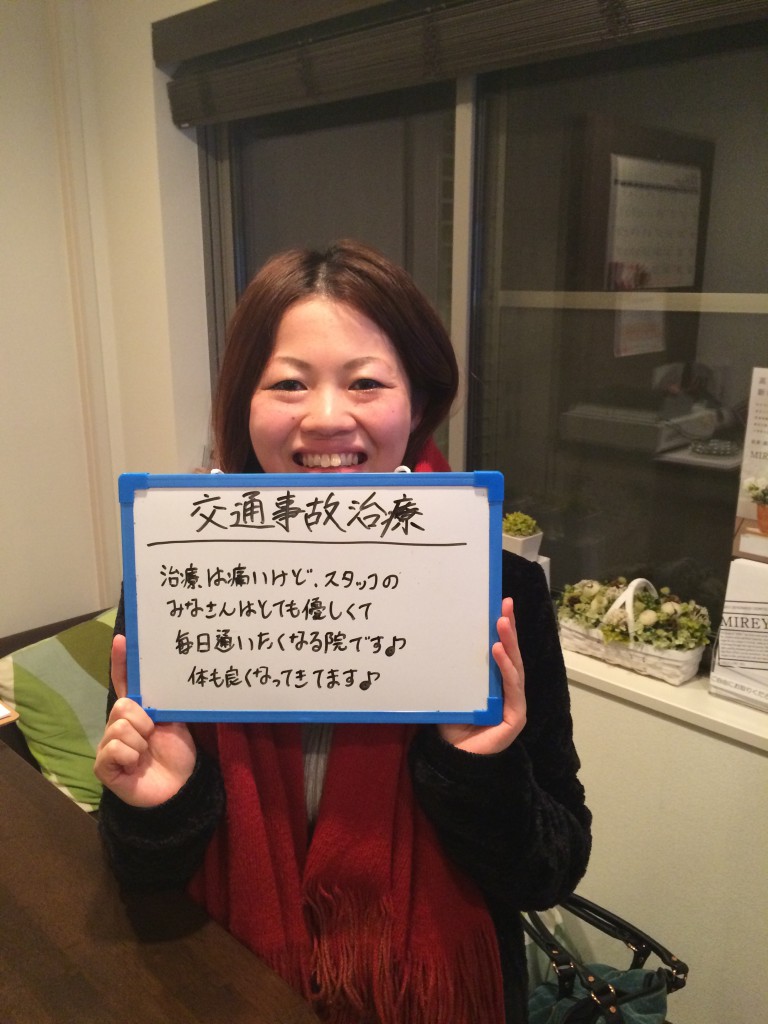 交通事故治療
治療は痛いけど、スタッフの
みなさんはとても優しくて
毎日通いたくなる院です♪
体も良くなってきてます♪
MIREY